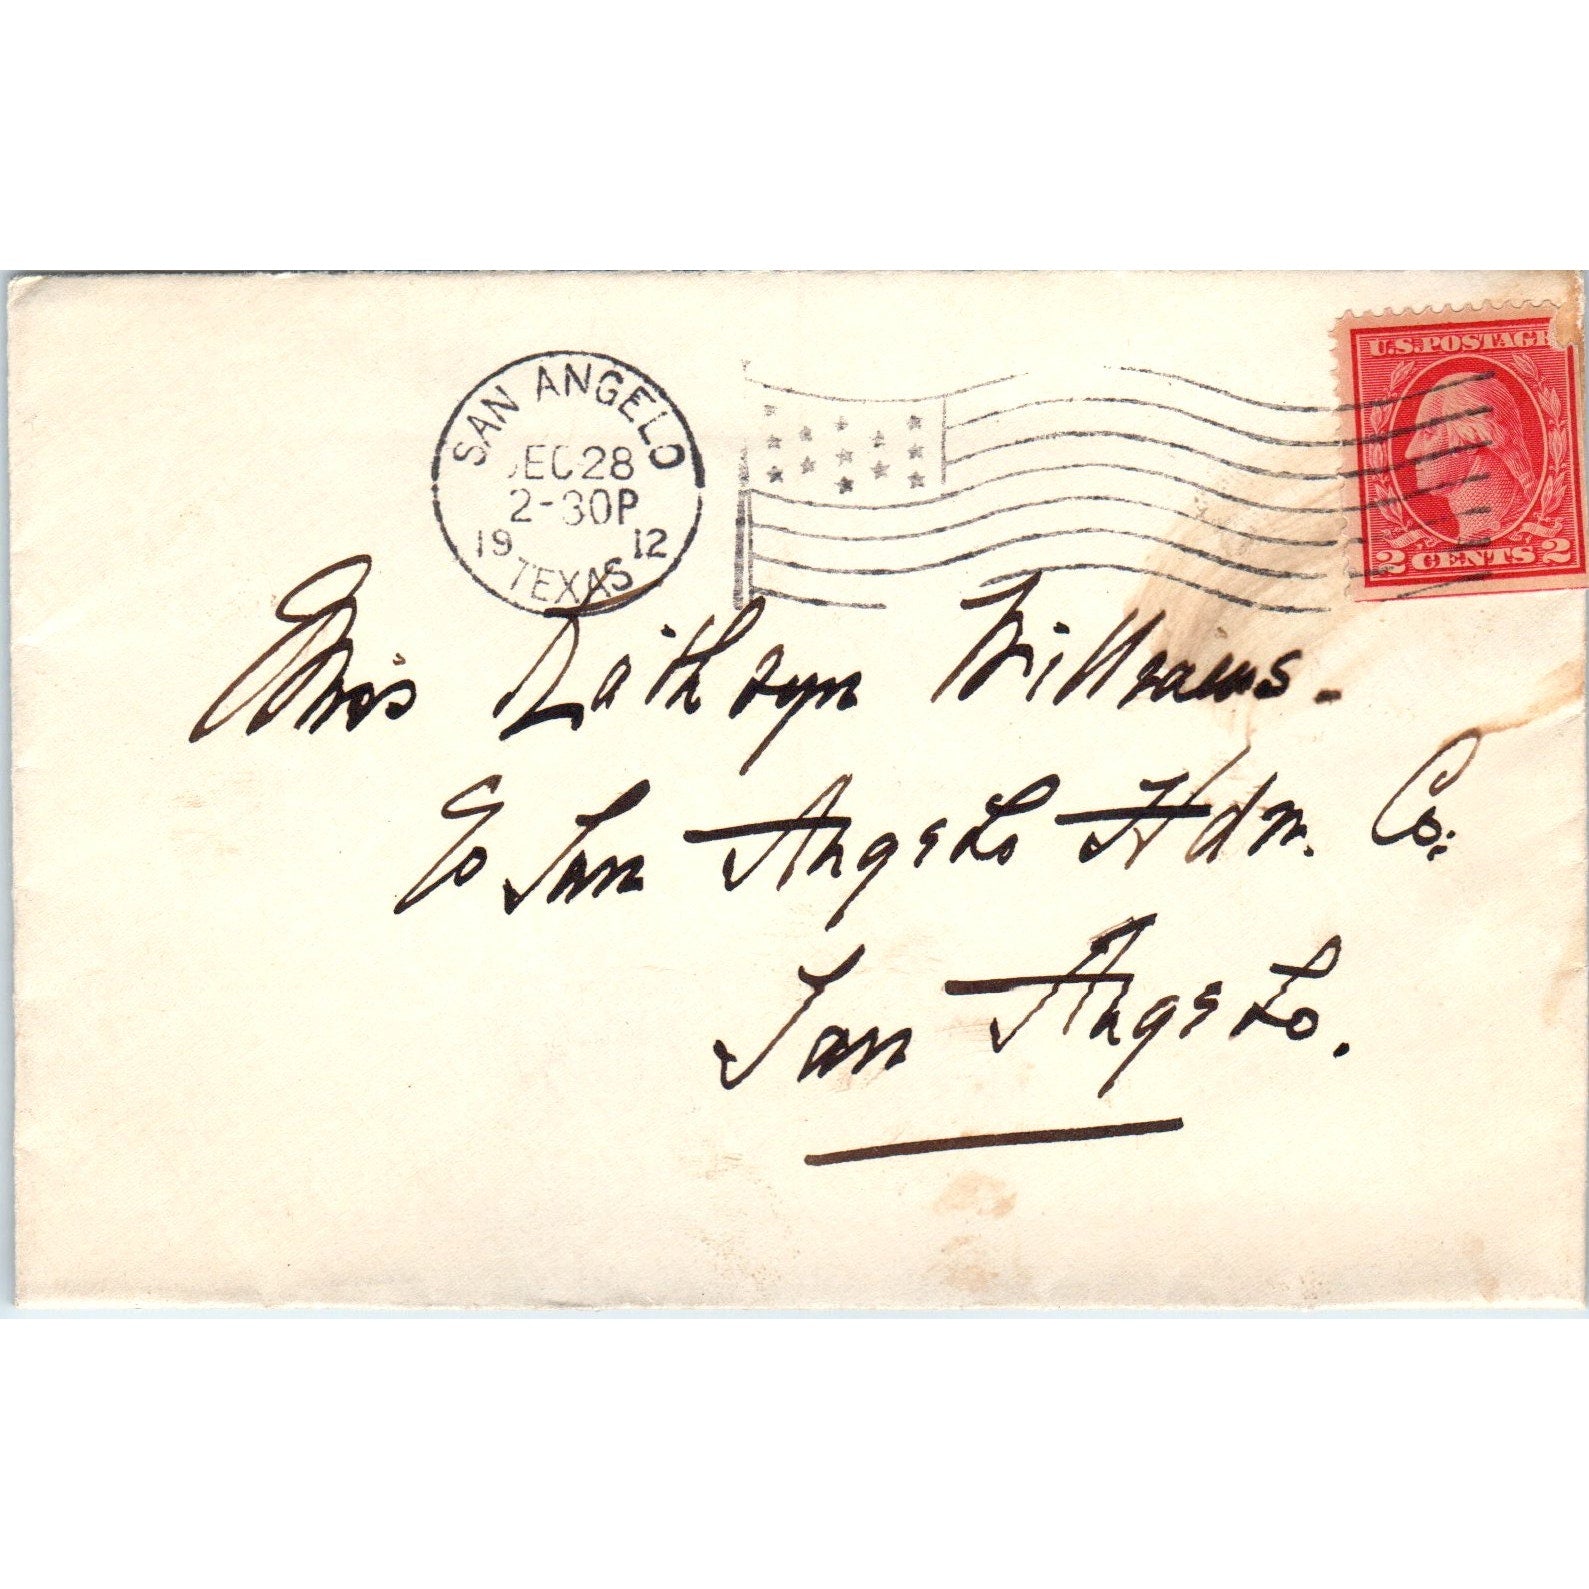 U.S.POSTAGE
2 CENTS 2
SAN ANGELO
DEC 28
2-30P
19 12
TEXAS
Miss Kathryn Williams.
c/o San Angelo Hdw. Co.
San Angelo.